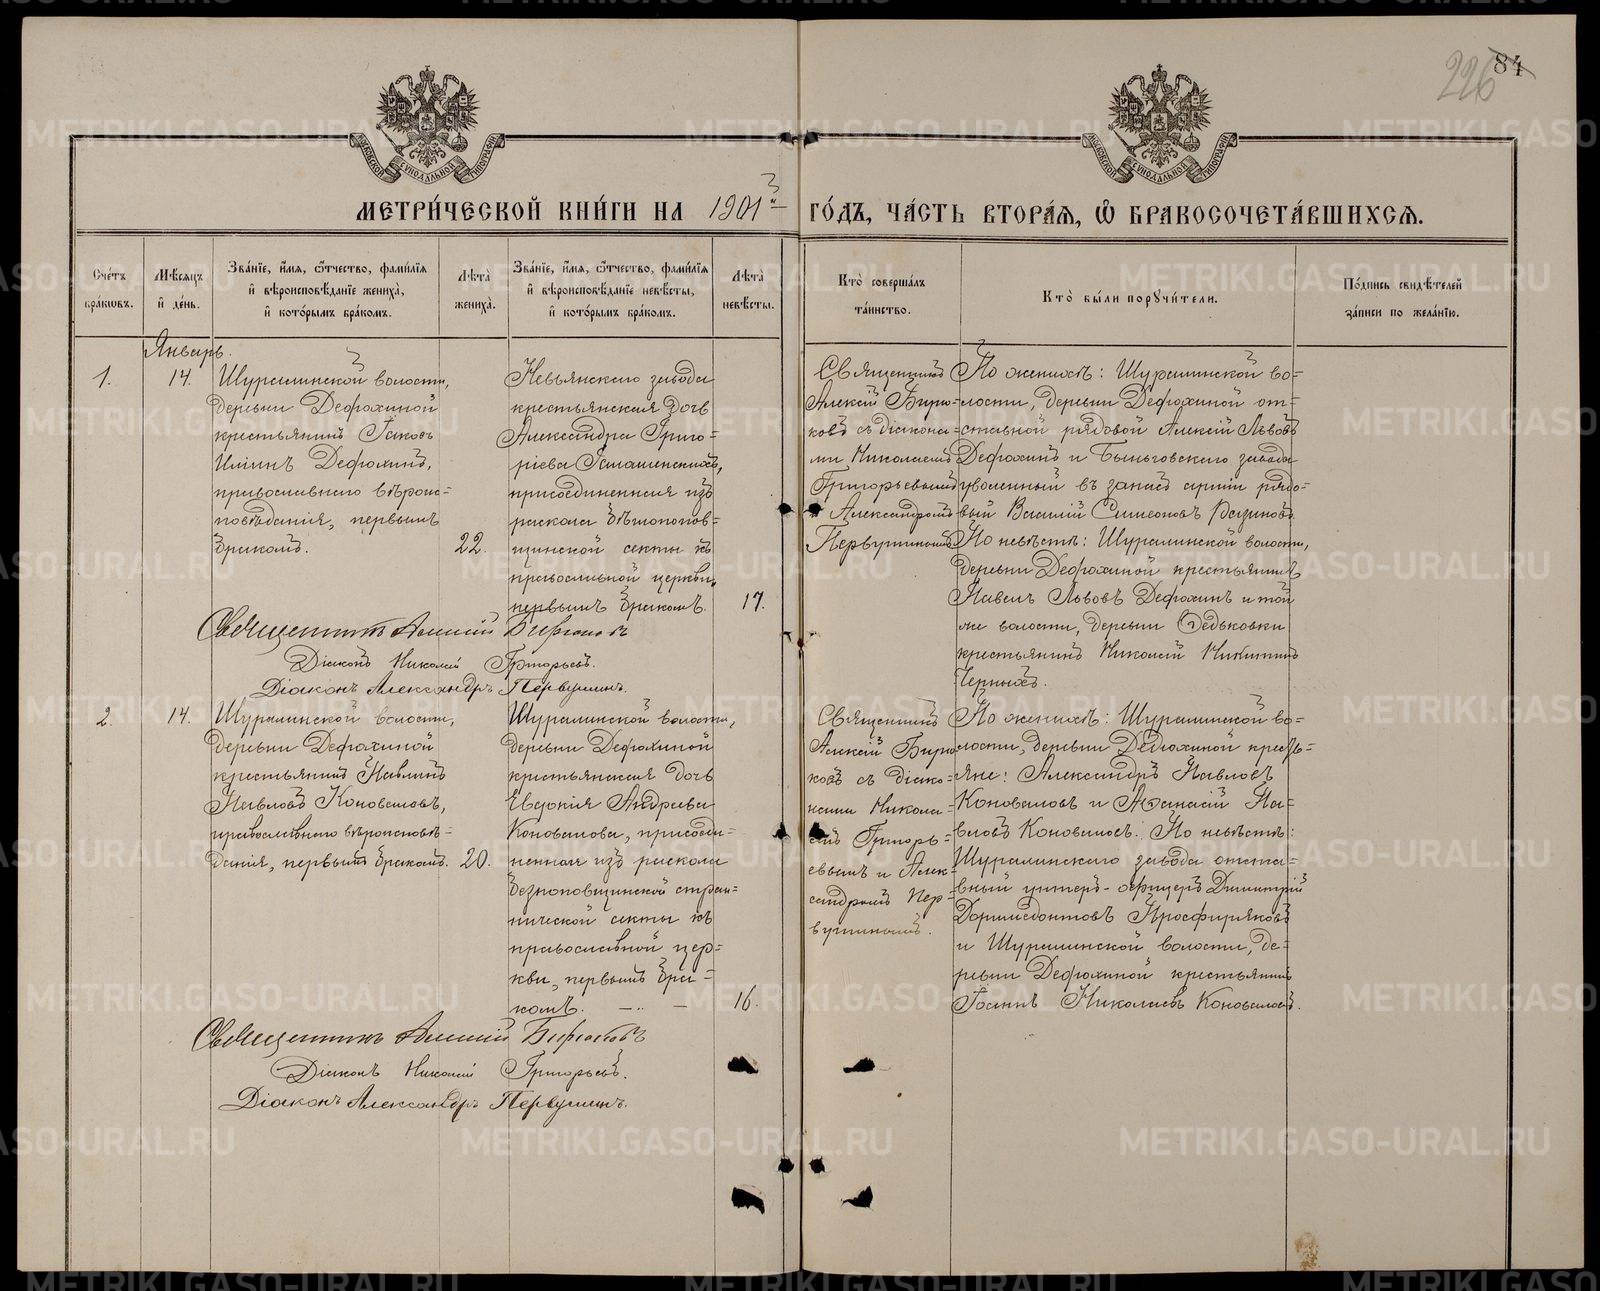 226 84
МОСКОВСКОЙ СУНОДАЛЬНОЙ ТИПОГРАФІИ
МОСКОВСКОЙ СУНОДАЛЬНОЙ ТИПОГРАФІИ
МЕТРИ́ЧЕСКОЙ КНИ́ГИ НА 1901й ГО́ДЪ, ЧА́СТЬ ВТОРА́Я, Ѽ БРАКОСОЧЕТА́ВШИХСѦ.
Сче́тъ бра́кѡвъ.
Мѣ́сѧцъ и҆ де́нь.
Зва́нїе, и҆́мѧ, ѻ҆́тчество, фами́лїѧ и҆ вѣроисповѣ́данїе жениха̀, и҆ кото́рымъ бра́комъ.
Лѣ́та жениха̀.
Зва́нїе, и҆́мѧ, ѻ҆́тчество, фами́лїѧ и҆ вѣроисповѣ́данїе невѣ́сты, и҆ кото́рымъ бра́комъ.
Лѣ́та невѣ́сты.
Кто̀ соверша́лъ та́инство.
Кто̀ бы́ли порꙋчи́тели.
По́дпись свидѣ́телей за́писи по жела́нїю.
Январь.
1.
14.
Шуралинской волости,
деревни Дедюхиной
крестьянинъ Іаковъ
Иліинъ Дедюхинъ,
православнаго вѣроис=
повѣданія, первымъ
бракомъ.
22.
Невьянскаго завода
крестьянская дочь
Александра Григо=
ріева
присоединенная изъ
раскола бѣглопопов=
щинской секты къ
православной церкви,
первымъ бракомъ.
17.
Священникъ
Алексій Бирю=
ковъ съ діакона=
ми Николаемъ
Григорьевымъ
и Александромъ
Первушинымъ
По женихѣ: Шуралинской во=
лости, деревни Дедюхиной от=
ставной рядовой Алексій Львовъ
Дедюхинъ и Быньговскаго завода
уволенный въ запасъ арміи рядо=
вой Василій Симеоновъ
По невѣстѣ: Шуралинской волости,
деревни Дедюхиной крестьянинъ
Павелъ Львовъ Дедюхинъ и той
же волости, деревни Федьковки
крестьянинъ Николай Никитинъ
Черныхъ.
Священникъ Алексій Бирюковъ
Діаконъ Николай Григорьевъ.
Діаконъ Александръ Первушинъ.
2.
14.
Шуралинской волости,
деревни Дедюхиной
крестьянинъ Павлинъ
Павловъ Коноваловъ,
православнаго вѣроисповѣ=
данія, первымъ бракомъ.
20.
Шуралинской волости,
деревни Дедюхиной
крестьянская дочь
Евдокія Андреева
Коновалова, присоеди=
ненная изъ раскола
безпоповщинской стран=
нической секты къ
православной цер=
кви, первымъ бра=
комъ.
16.
Священникъ
Алексій Бирю=
ковъ съ діако=
нами Никола=
емъ Григорь=
евымъ и Алек=
сандромъ Пер=
вушинымъ.
По женихѣ: Шуралинской во=
лости, деревни Дедюхиной кресть=
яне: Александръ Павловъ
Коноваловъ и Аѳанасій Па=
вловъ Коноваловъ. По невѣстѣ:
Шуралинскаго завода отста=
вный унтеръ-офицеръ Димитрій
Доримедонтовъ Просфиряковъ
и Шуралинской волости, де=
ревни Дедюхиной крестьянинъ
Іоаннъ Николаевъ Коноваловъ.
Священникъ Алексій Бирюковъ
Діаконъ Николай Григорьевъ.
Діаконъ Александръ Первушинъ.
METRIKI.GASO-URAL.RU